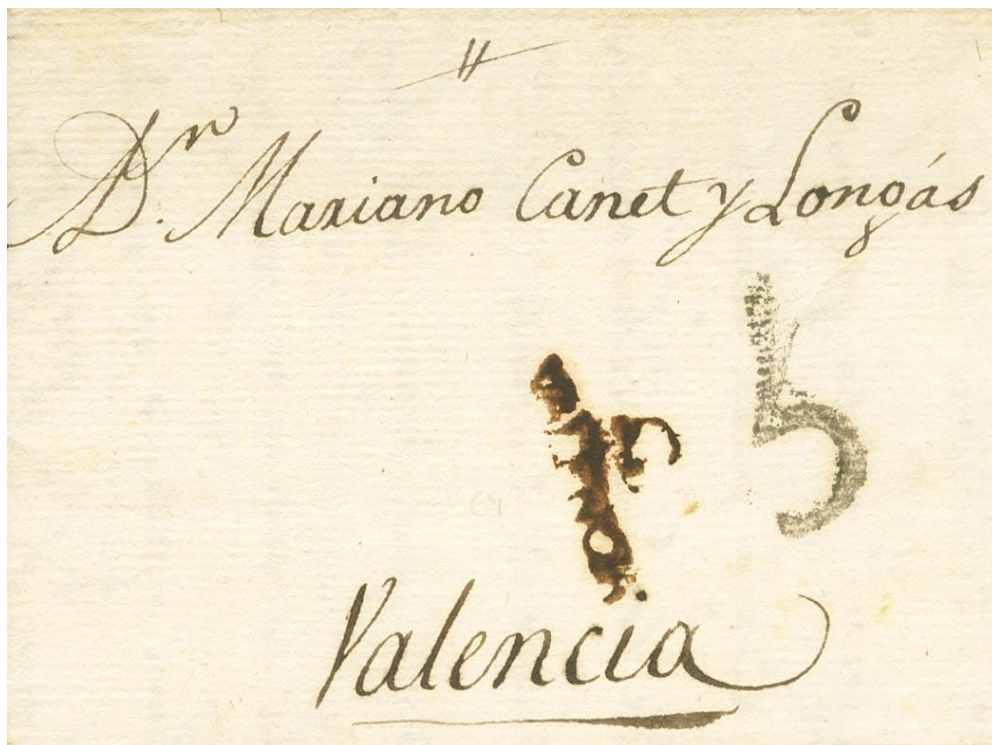 Dn. Mariano Canet y Longás
5
Valencia